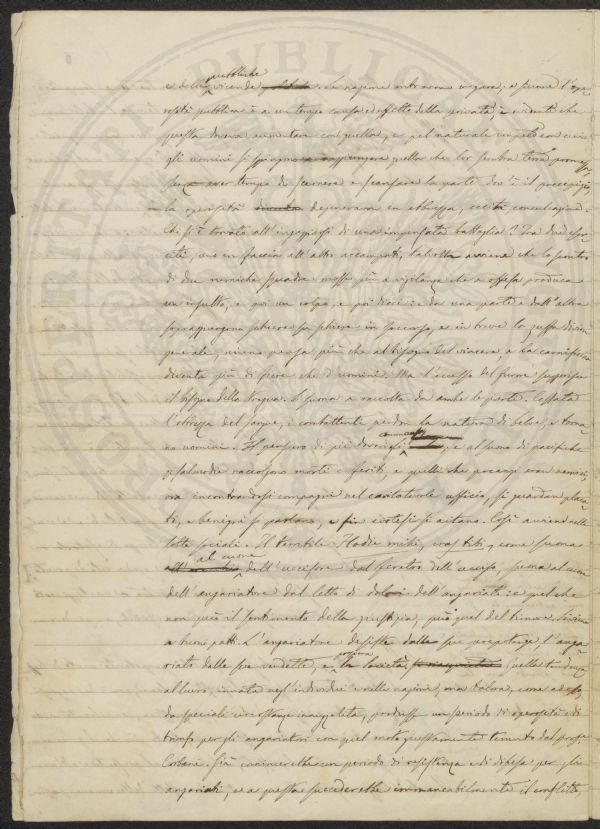 e delle pubbliche vicende. La nazione entra ora in gara, e siccome l'ope-
rosità pubblica è a un tempo causa ed effetto della privata, è evidente che
questa dovea aumentare con quella, e pel naturale impeto con cui
gli uomini si spingono a raggiungere quello che lor sembra terra promessa,
senza aver tempo di scernere e scansare la parte dov'è il precipizio,
la operosità degenerava in ebbrezza, eccita consultazioni.
Chi s'è trovato all'ingaggiarsi di una impensata battaglia? Tra due eser-
citi, uno in faccia all'altro accampati, talvolta avviene che lo scontro
di due nemiche squadre mosse più a vigilanza che a offesa produca
un insulto, e poi un colpo, e poi dieci: e da una parte e dall'altra
sopraggiungono schiere su schiere in soccorso, e in breve la zuffa divien
generale, niuno pensa più che al bisogno del vincere, e la carneficina
diventa più di fiere che d'uomini. Ma l'eccesso del furore suggerisce
il bisogno della tregua. Si suona a raccolta da ambe le parti. Cessata
l'ebbrezza del sangue, i combattenti perdon la natura di belve, e torna-
no uomini. Il pensiero di più doveri si commuove, e al suono di pacifiche
salmodie raccolgono morti e feriti, e quelli che poc'anzi eran nemici,
ora incontrandosi compagni nel caritatevole ufficio, si guardan placa-
ti, e benigni si parlano, e fin cortesi si aitano. Così avviene nelle
lotte sociali. Il terribile Hodie mihi, cras tibi, come suona
al cuore dell'uccisore dal feretro dell'ucciso, suona al cuore
dell'angariatore dal letto di dolori dell'angariato: e quel che
non può il sentimento della giustizia, può quel del timore. Si viene
a buoni patti. L'angariatore desiste dalle sue prepotenze, l'anga-
riato dalle sue vendette, e la società
al lavoro, innata negl'individui e nelle nazioni, ma talora, come adesso,
da speciali circostanze inavvedute, produsse un periodo di operosità e di
trionfo per gli angariatori con quel moto giustamente temuto dal prof.
Corbani. Già comincerebbe un periodo di resistenza e di difesa per gli
angariati, e a questa succederebbe immancabilmente il conflitto,